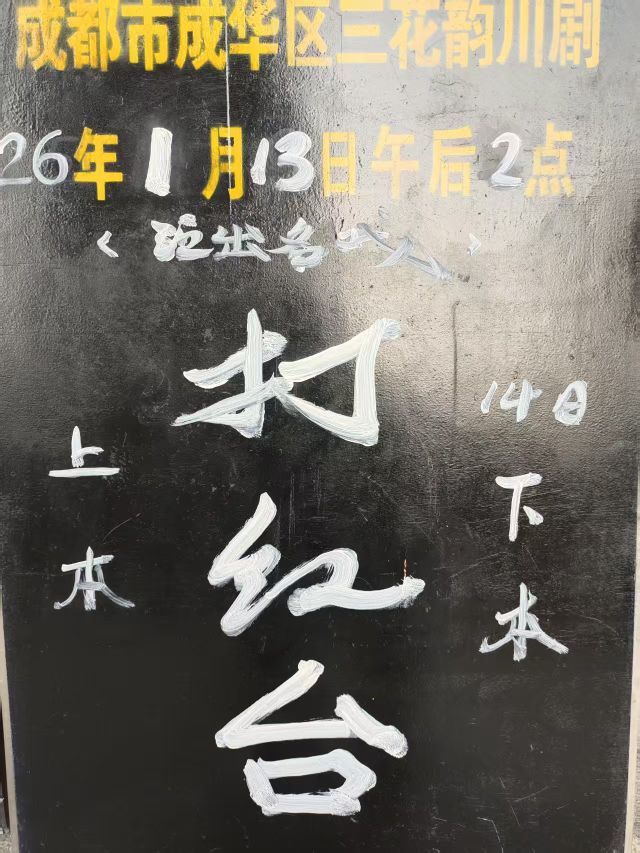 成都市成华区三花韵川剧
26年1月13日午后2点
打红台
上本
14日
下本